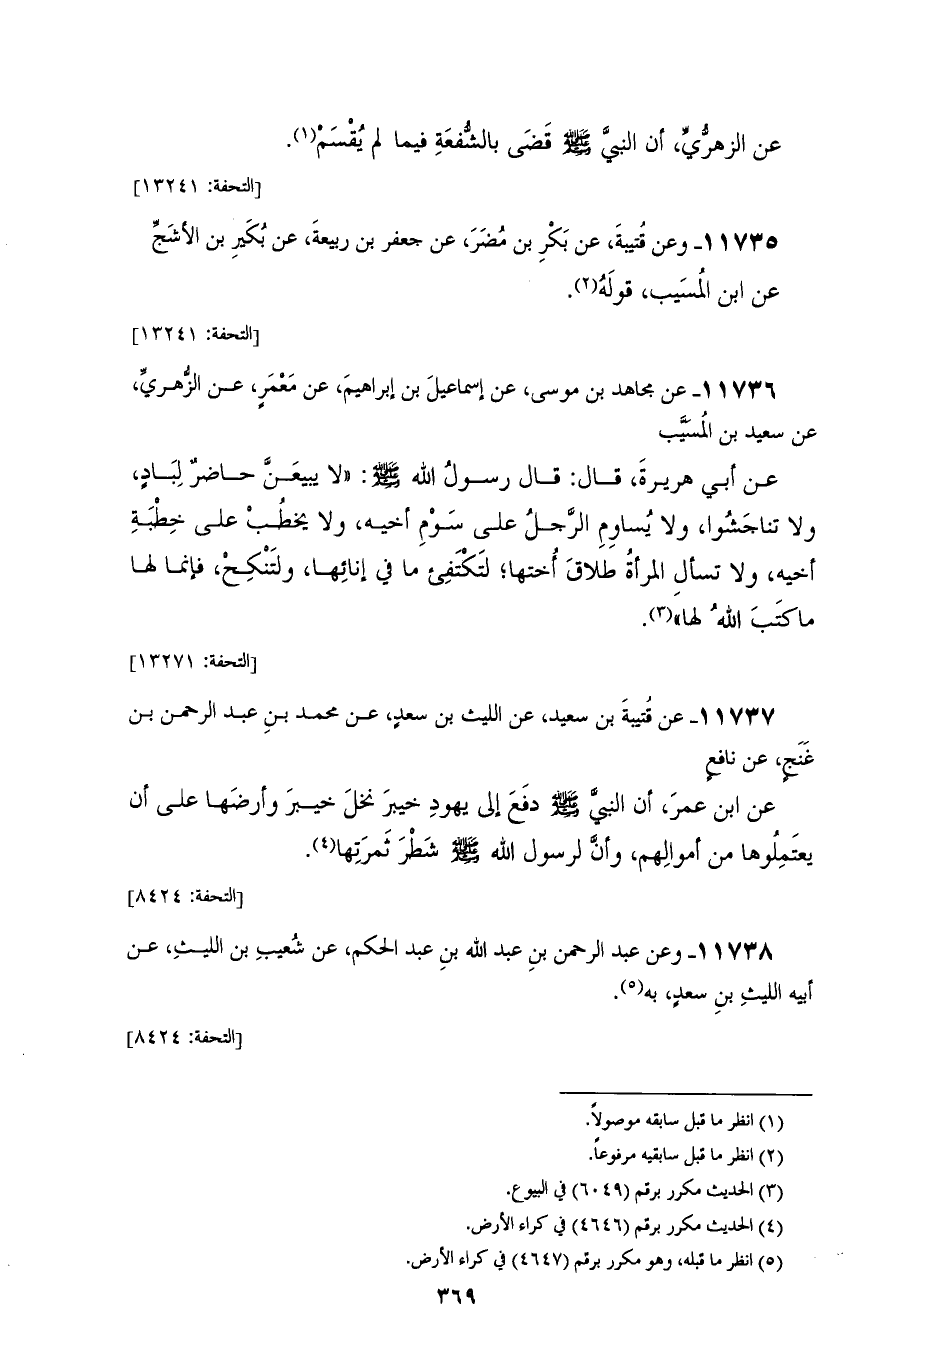 عن الزهريِّ، أن النبيَّ ﷺ قَضَى بالشُّفعَةِ فيما لم يُقْسَمْ(١).
[التحفة: ١٣٢٤١]
١١٧٣٥ـ وعن قُتيبةَ، عن بَكْرِ بن مُضَرَ، عن جعفر بن ربيعةَ، عن بُكَيرِ بن الأشَجِّ
عن ابن المُسيَب، قولَهُ(٢).
[التحفة: ١٣٢٤١]
١١٧٣٦ـ عن مجاهد بن موسى، عن إسماعيلَ بن إبراهيمَ، عن مَعْمَرٍ، عـن الزُّهـريِّ،
عن سعيد بن المُسَيَّب
عـن أبـي هريـرةَ، قـال: قـال رسـولُ الله ﷺ: «لا يبيعَـنَّ حـاضرٌ لِبَـادٍ،
ولا تناجَشُوا، ولا يُساوِمِ الرَّجـلُ علـى سَـوْمِ أخيـه، ولا يخطُـبْ علـى خِطْبَـةِ
أخيه، ولا تسألِ المرأةُ طلاقَ أُختها؛ لتَكتَفِئ ما في إنائِهـا، ولتَنْكِـحْ، فإنمـا لهـا
ماكتَبَ اللهُ لها»(٣).
[التحفة: ١٣٢٧١]
١١٧٣٧ـ عن قُتيبةَ بن سعيد، عن الليث بن سعدٍ، عـن محمـد بـنِ عبـد الرحمـن بـن
غَنَجٍ، عن نافعٍ
عن ابن عمرَ، أن النبيَّ ﷺ دفَعَ إلى يهودِ خيبرَ نخلَ خيـبرَ وأرضَهـا علـى أن
يعتَمِلُوها من أموالِهم، وأنَّ لرسول الله ﷺ شَطْرَ ثَمرَتِها(٤).
[التحفة: ٨٤٢٤]
١١٧٣٨ـ وعن عبد الرحمن بنِ عبد الله بنِ عبد الحكم، عن شُعيبِ بن الليـثِ، عـن
أبيه الليثِ بنِ سعدٍ، به(٥).
[التحفة: ٨٤٢٤]
(١) انظر ما قبل سابقه موصولاً.
(٢) انظر ما قبل سابقيه مرفوعاً.
(٣) الحديث مكرر برقم (٦٠٤٩) في البيوع.
(٤) الحديث مكرر برقم (٤٦٤٦) في كراء الأرض.
(٥) انظر ما قبله، وهو مكرر برقم (٤٦٤٧) في كراء الأرض.
٣٦٩